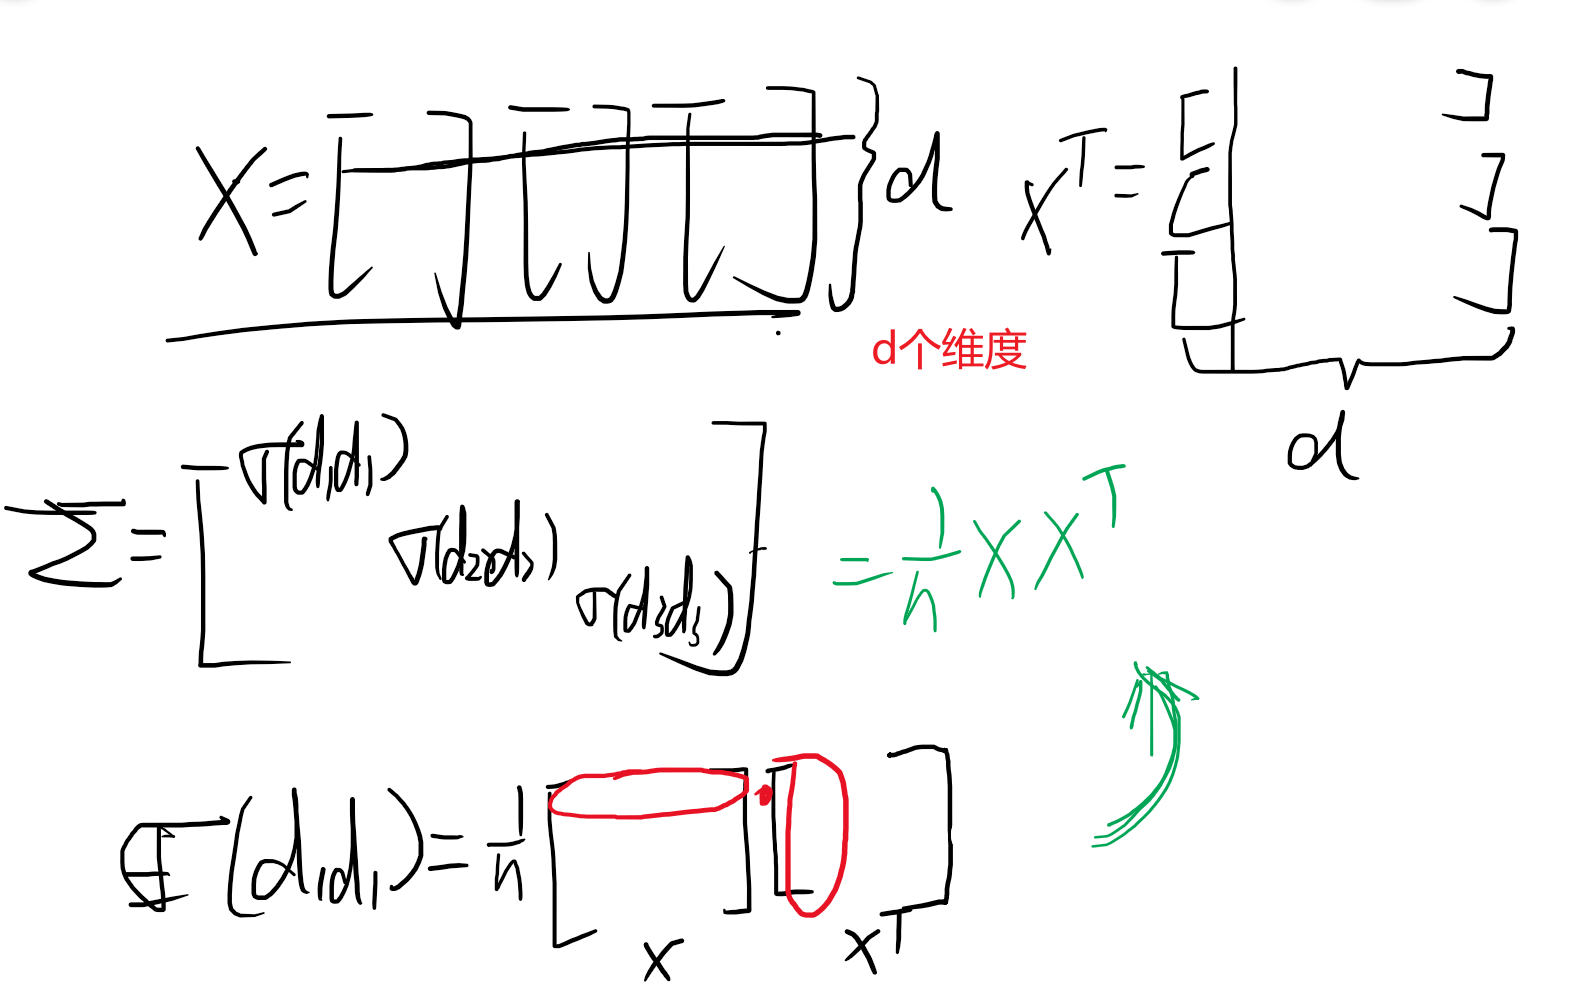 X = [ ] [ ] [ ] } d
X^T =
d个维度
d
Σ = [ σ(d₁d₁)
σ(d₂d₂)
σ(d₃d₃) ]
= 1/n X X^T
σ(d₁d₁) = 1/n [ ] · [ ]
X X^T